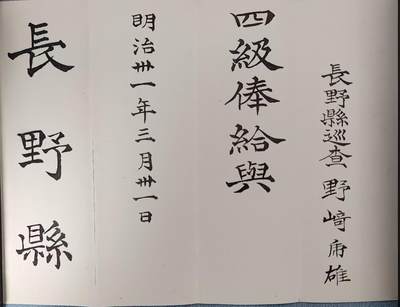 長野縣巡查 野﨑甫雄
四級俸給與
明治卅一年三月卅一日
長野縣